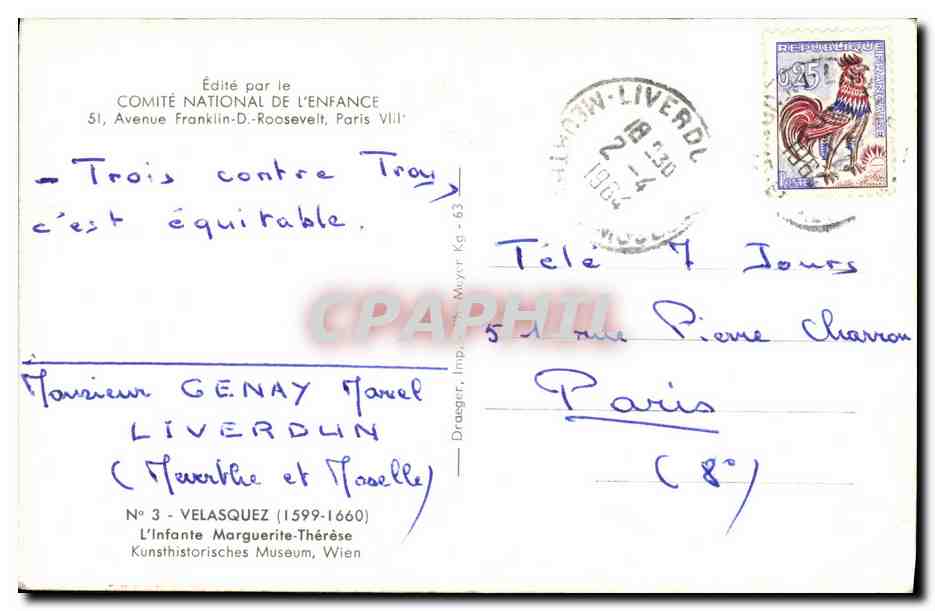 Édité par le
COMITÉ NATIONAL DE L'ENFANCE
51, Avenue Franklin-D.-Roosevelt, Paris VIIIe
- Trois contre Trois,
c'est équitable.
Monsieur GENAY Marcel
LIVERDUN
(Meurthe et Moselle)
N° 3 - VELASQUEZ (1599-1660)
L'Infante Marguerite-Thérèse
Kunsthistorisches Museum, Wien
Draeger, Imp. Meyer Kg - 63
CPAPHIL
LIVERDU
18 - 30
2 - 4
1964
REPUBLIQUE FRANÇAISE
0,25
POSTES
Télé 7 Jours
51 rue Pierre Charron
Paris
(8°)